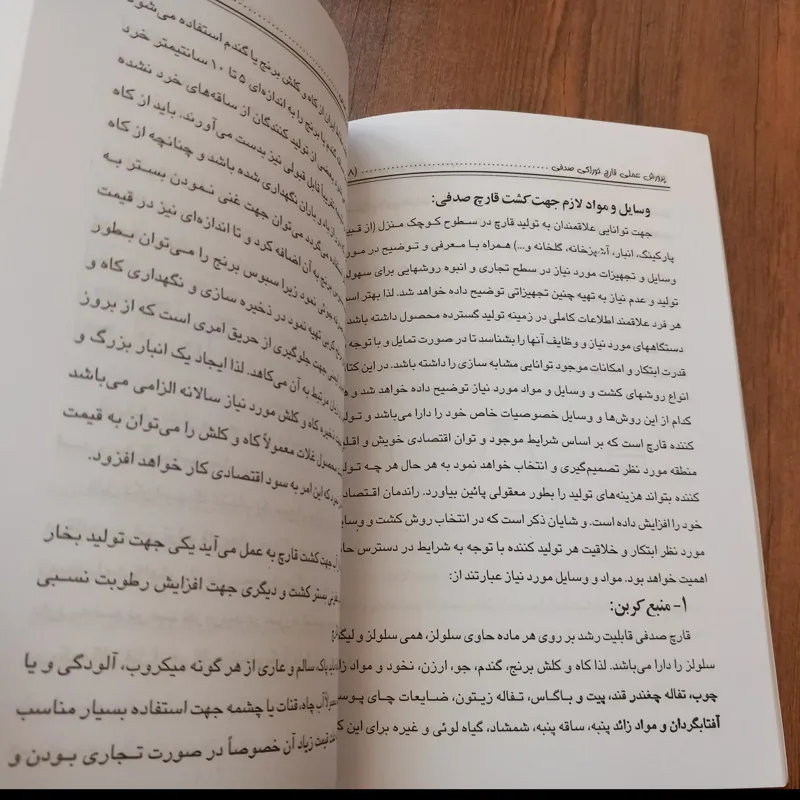 پرورش عملی قارچ خوراکی صدفی
وسایل و مواد لازم جهت کشت قارچ صدفی:
جهت توانایی علاقمندان به تولید قارچ در سطوح کوچک منزل (از قبیل
پارکینگ، انبار، آشپزخانه، گلخانه و...) همراه با معرفی و توضیح در مورد
وسایل و تجهیزات مورد نیاز در سطح تجاری و انبوه روشهایی برای سهولت
تولید و عدم نیاز به تهیه چنین تجهیزاتی توضیح داده خواهد شد. لذا بهتر است
هر فرد علاقمند اطلاعات کاملی در زمینه تولید گسترده محصول داشته باشد
دستگاههای مورد نیاز و وظایف آنها را بشناسد تا در صورت تمایل و با توجه
قدرت ابتکار و امکانات موجود توانایی مشابه سازی را داشته باشد. در این کتاب
انواع روشهای کشت و وسایل و مواد مورد نیاز توضیح داده خواهد شد و
کدام از این روش‌ها و وسایل خصوصیات خاص خود را دارا می‌باشد و تولید
کننده قارچ است که بر اساس شرایط موجود و توان اقتصادی خویش و
منطقه مورد نظر تصمیم‌گیری و انتخاب خواهد نمود به هر حال هر چه تولید
کننده بتواند هزینه‌های تولید را بطور معقولی پائین بیاورد. راندمان اقتصادی
خود را افزایش داده است. و شایان ذکر است که در انتخاب روش کشت و وسایل
مورد نظر ابتکار و خلاقیت هر تولید کننده با توجه به شرایط در دسترس حائز
اهمیت خواهد بود. مواد و وسایل مورد نیاز عبارتند از:
۱- منبع کربن:
قارچ صدفی قابلیت رشد بر روی هر ماده حاوی سلولز، همی سلولز و
سلولز را دارا می‌باشد. لذا کاه و کلش برنج، گندم، جو، ارزن، نخود و مواد زائد
چوب، تفاله چغندر قند، پیت و باگاس، تفاله زیتون، ضایعات چای پوسته
آفتابگردان و مواد زائد پنبه، ساقه پنبه، شمشاد، گیاه لوئی و غیره برای این
ایران از کاه و کلش برنج یا گندم استفاده می‌شود
گندم یا برنج را به اندازه‌ای ۵ تا ۱۰ سانتیمتر خرد
بعضی از تولید کنندگان از ساقه‌های خرد نشده
تقریباً قابل قبولی نیز بدست می‌آورند. باید از کاه
باد و باران نگهداری شده باشد و چنانچه از کاه
می‌گردد می‌توان جهت غنی نمودن بستر به
برنج به آن اضافه کرد و تا اندازه‌ای نیز در قیمت
جوئی نمود زیرا سبوس برنج را می‌توان بطور
تهیه نمود در ذخیره سازی و نگهداری کاه و
جهت جلوگیری از حریق امری است که از بروز
مرتبط به آن می‌کاهد. لذا ایجاد یک انبار بزرگ و
ذخیره کاه و کلش مورد نیاز سالانه الزامی می‌باشد
محصول غلات معمولاً کاه و کلش را می‌توان به قیمت
که این امر به سود اقتصادی کار خواهد افزود.
جهت کشت قارچ به عمل می‌آید یکی جهت تولید بخار
بستر کشت و دیگری جهت افزایش رطوبت نسبی
پاک، سالم و عاری از هر گونه میکروب، آلودگی و یا
آب چاه، قنات یا چشمه جهت استفاده بسیار مناسب
قیمت زیاد آن خصوصاً در صورت تجاری بودن و